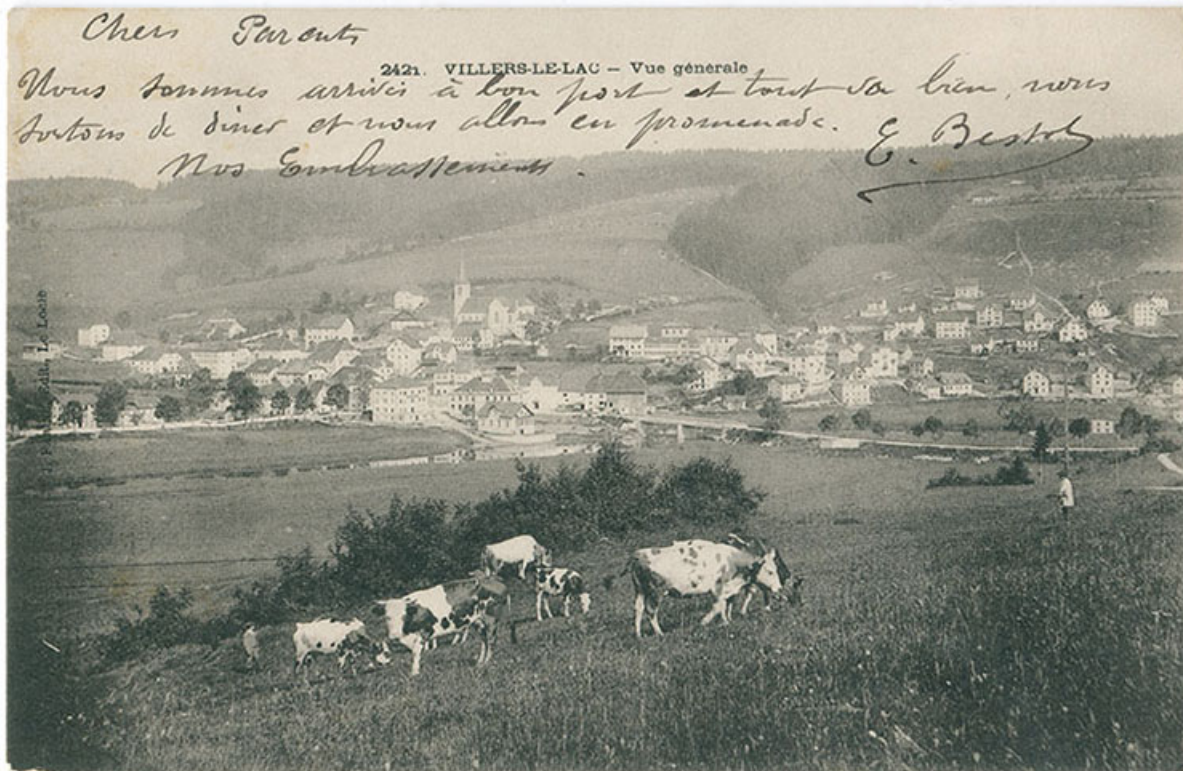 Chers Parents
2421. VILLERS-LE-LAC – Vue générale
Nous sommes arrivés à bon port et tout va bien, nous
sortons de diner et nous allons en promenade.
E. Bestol
Nos Embrassements.
Edit. Le Locle